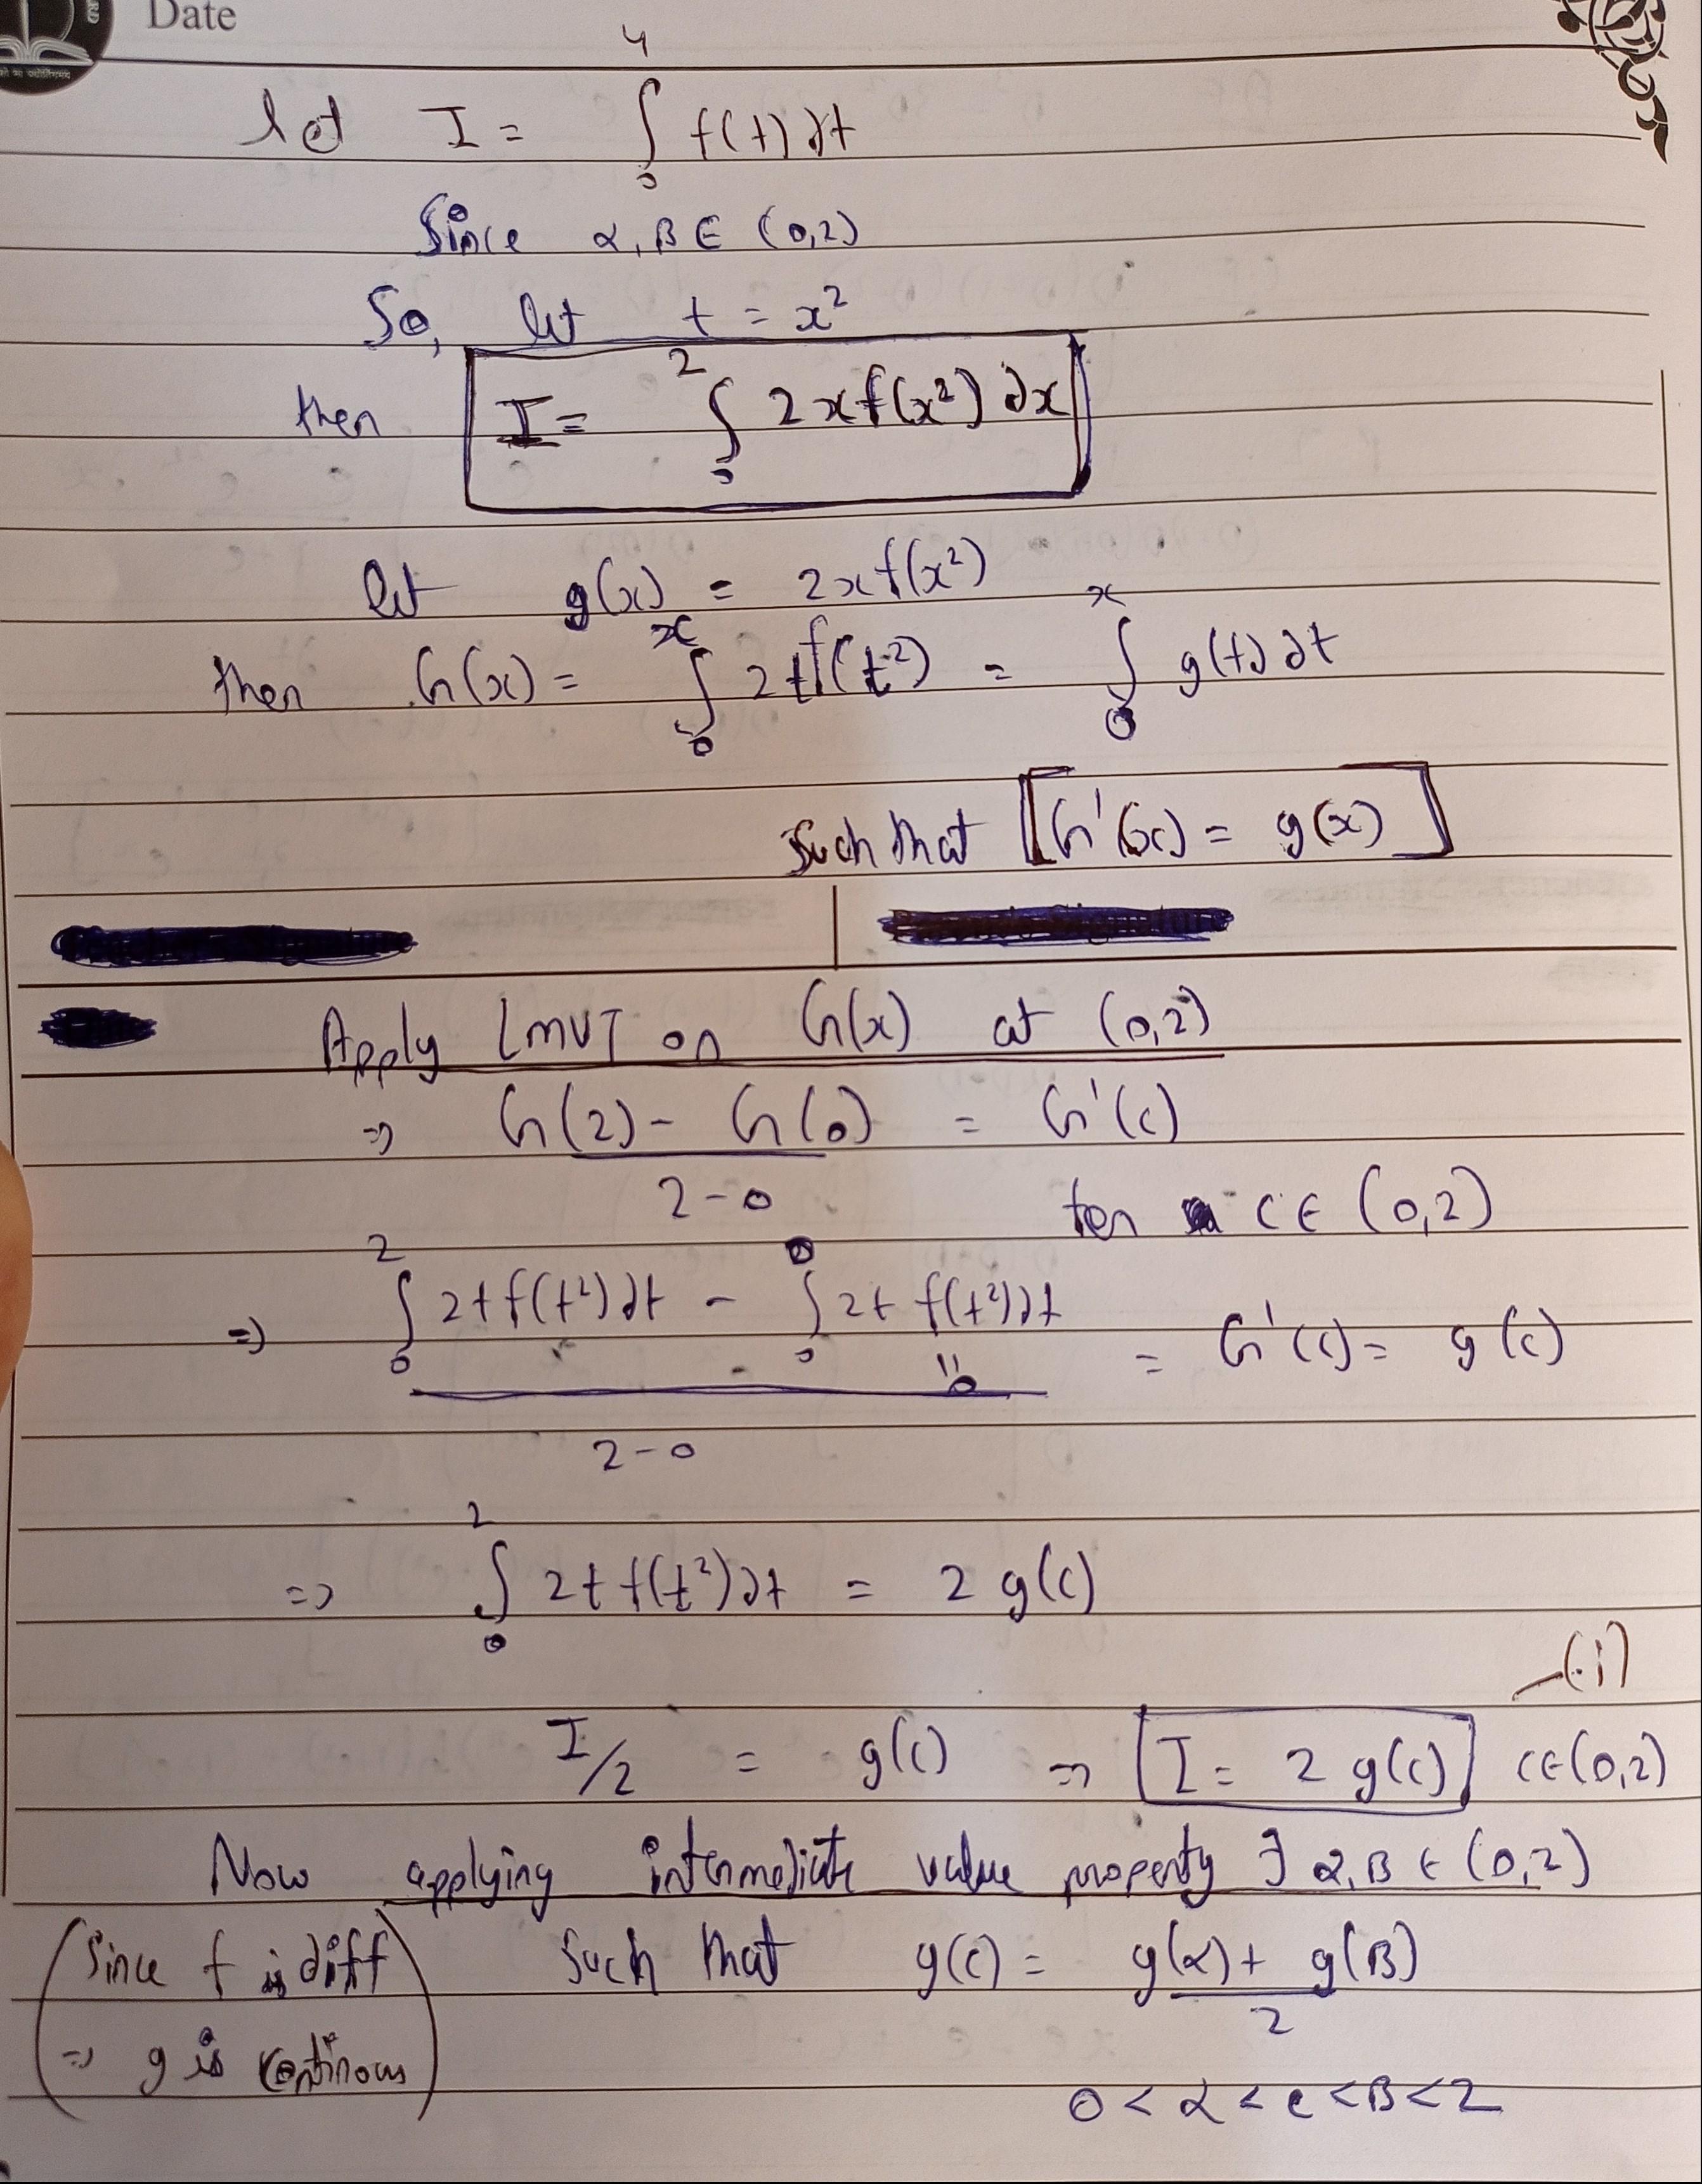 Date
let I = ∫₀⁴ f(t) dt
Since α, β ∈ (0,2)
So, let t = x²
then I = ∫₀² 2x f(x²) dx
let g(x) = 2x f(x²)
then G(x) = ∫₀ˣ 2t f(t²) = ∫₀ˣ g(t) dt
such that [G'(x) = g(x)]
Apply LMVT on G(x) at (0,2)
⇒ G(2) - G(0) / 2-0 = G'(c)
for c ∈ (0,2)
⇒ ∫₀² 2t f(t²) dt - ∫₀⁰ 2t f(t²) dt / 2-0 = G'(c) = g(c)
0
⇒ ∫₀² 2t f(t²) dt = 2 g(c)
—(i)
I/2 = g(c) ⇒ I = 2 g(c) c ∈ (0,2)
Now applying intermediate value property ∃ α, β ∈ (0,2)
(Since f is diff
⇒ g is continous)
Such that g(c) = g(α) + g(β) / 2
0 < α < c < β < 2